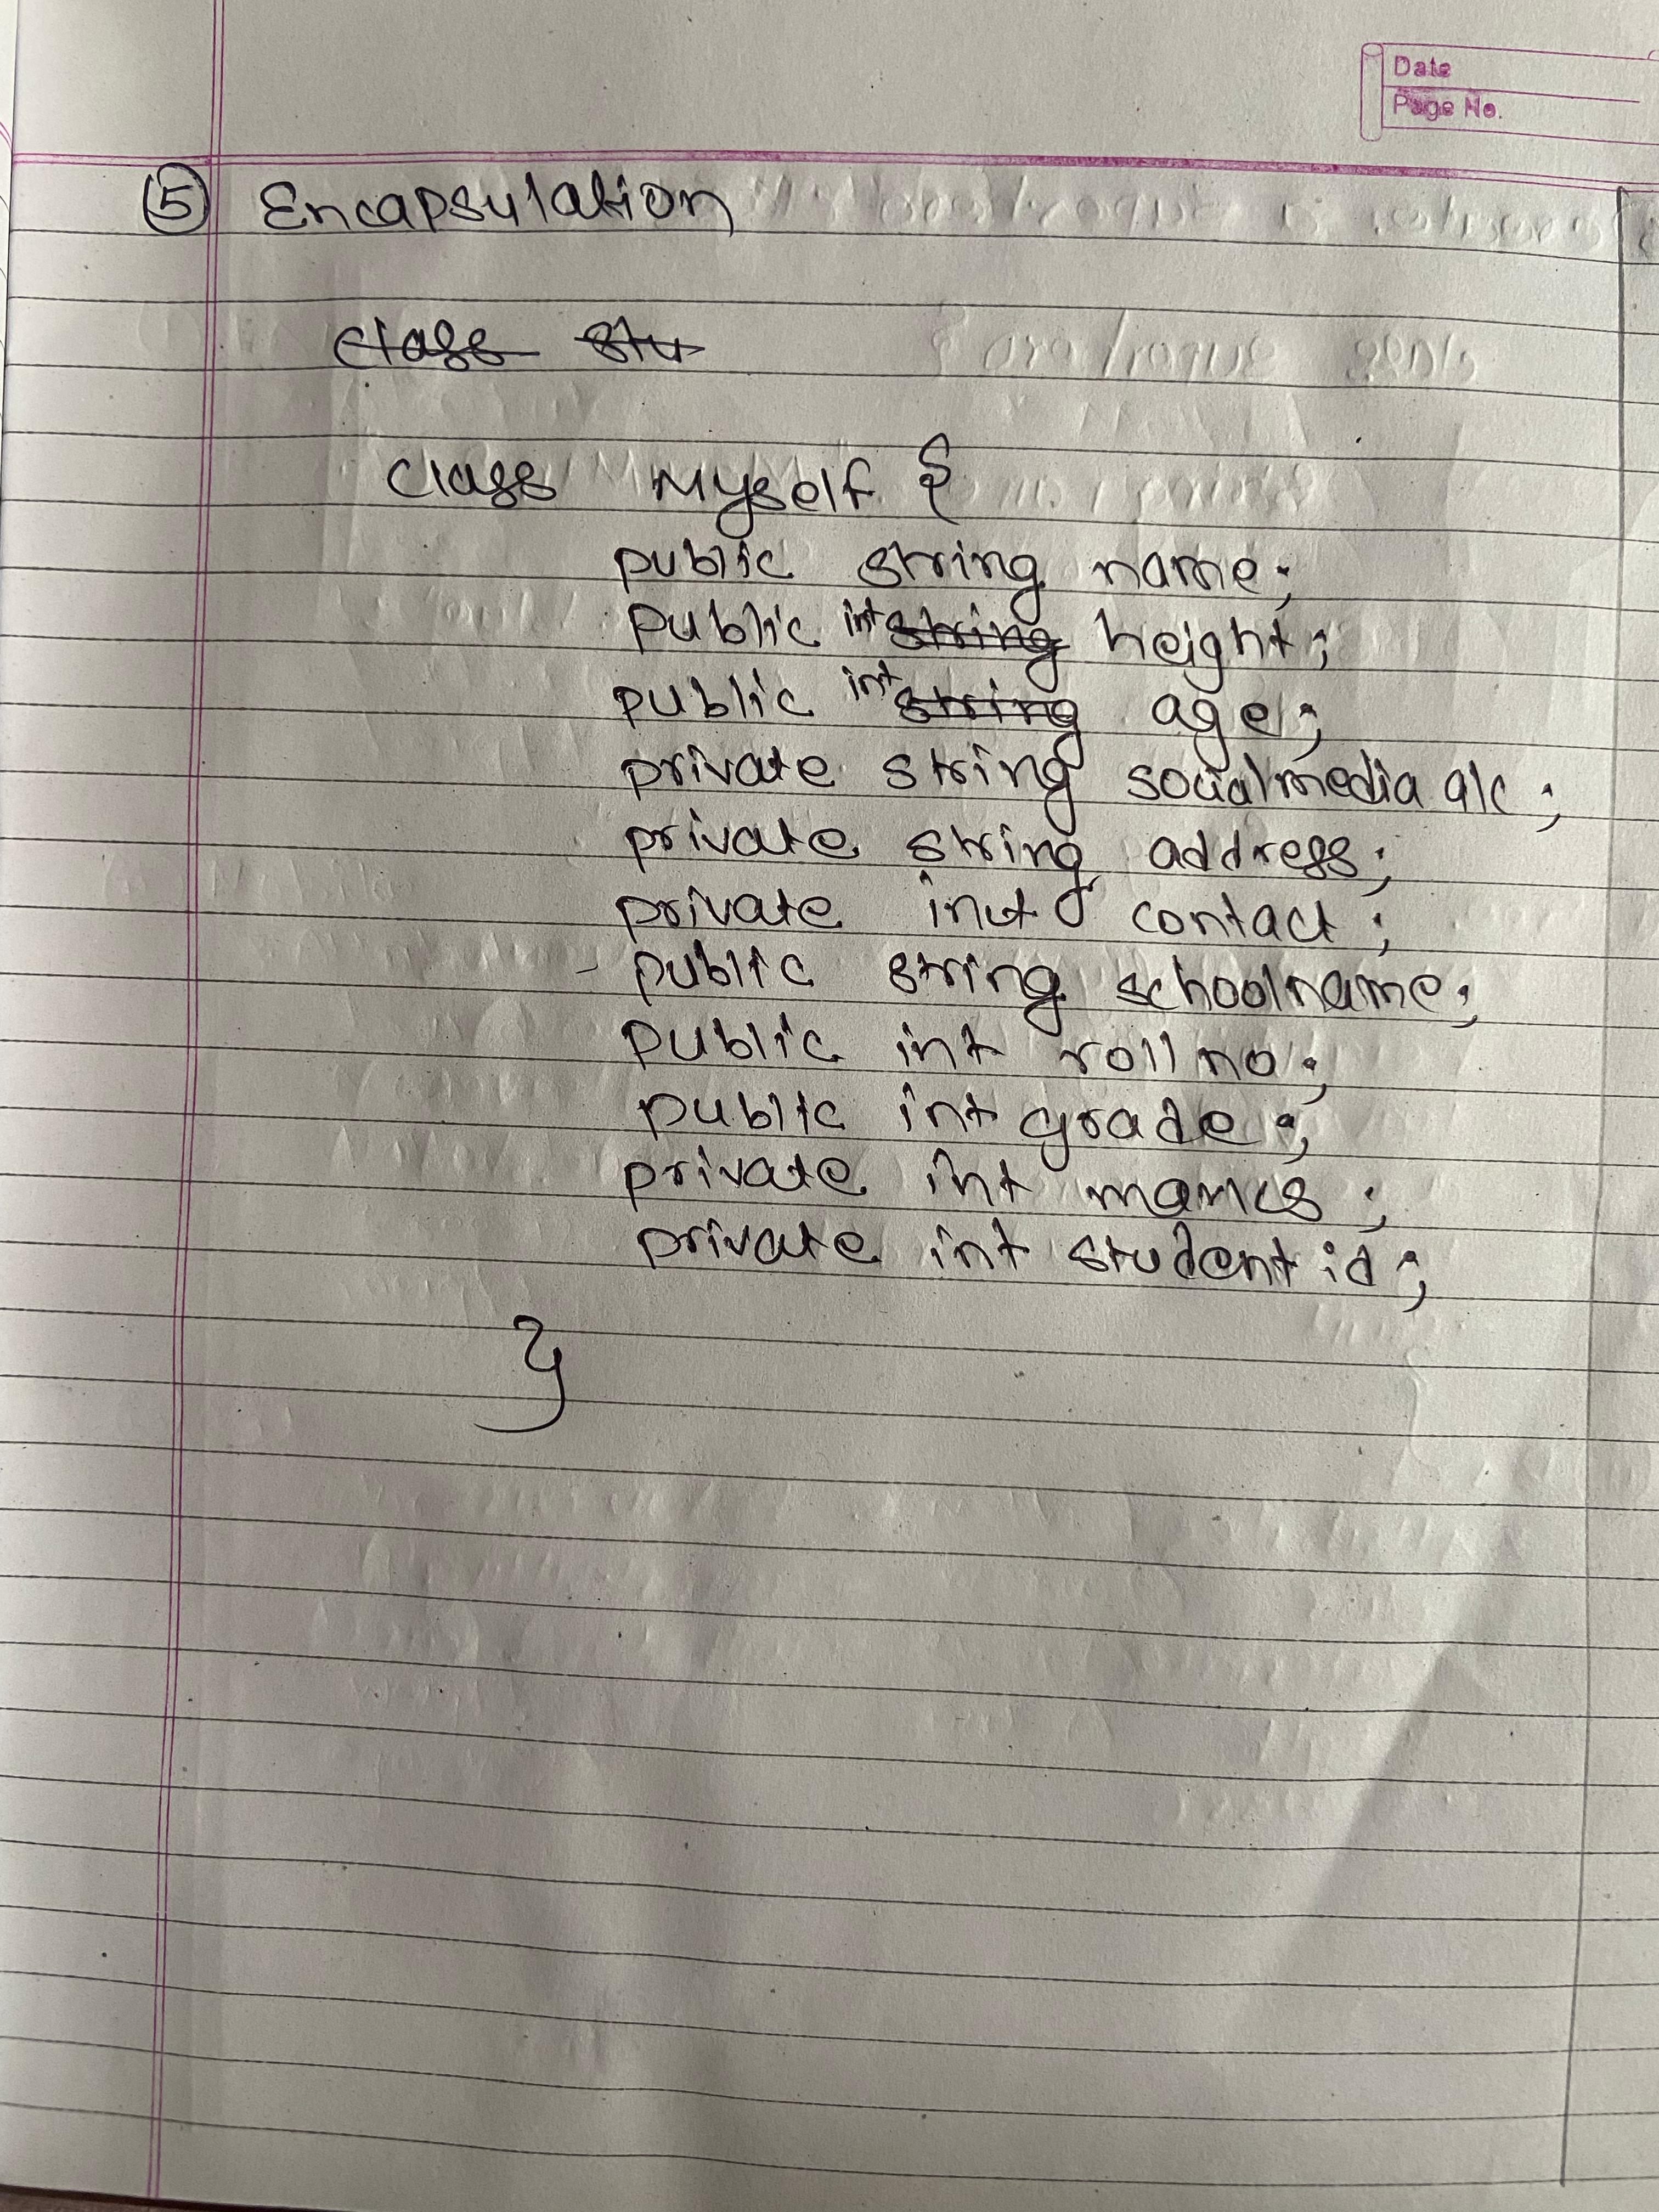 Date
Page No.
5 Encapsulation
class stu
class Myself {
public string name;
public int string height;
public int string age;
private string socialmedia a/c;
private string address;
private inut contact;
public string schoolname;
public int roll no;
public int grade;
private int marks;
private int student id;
}